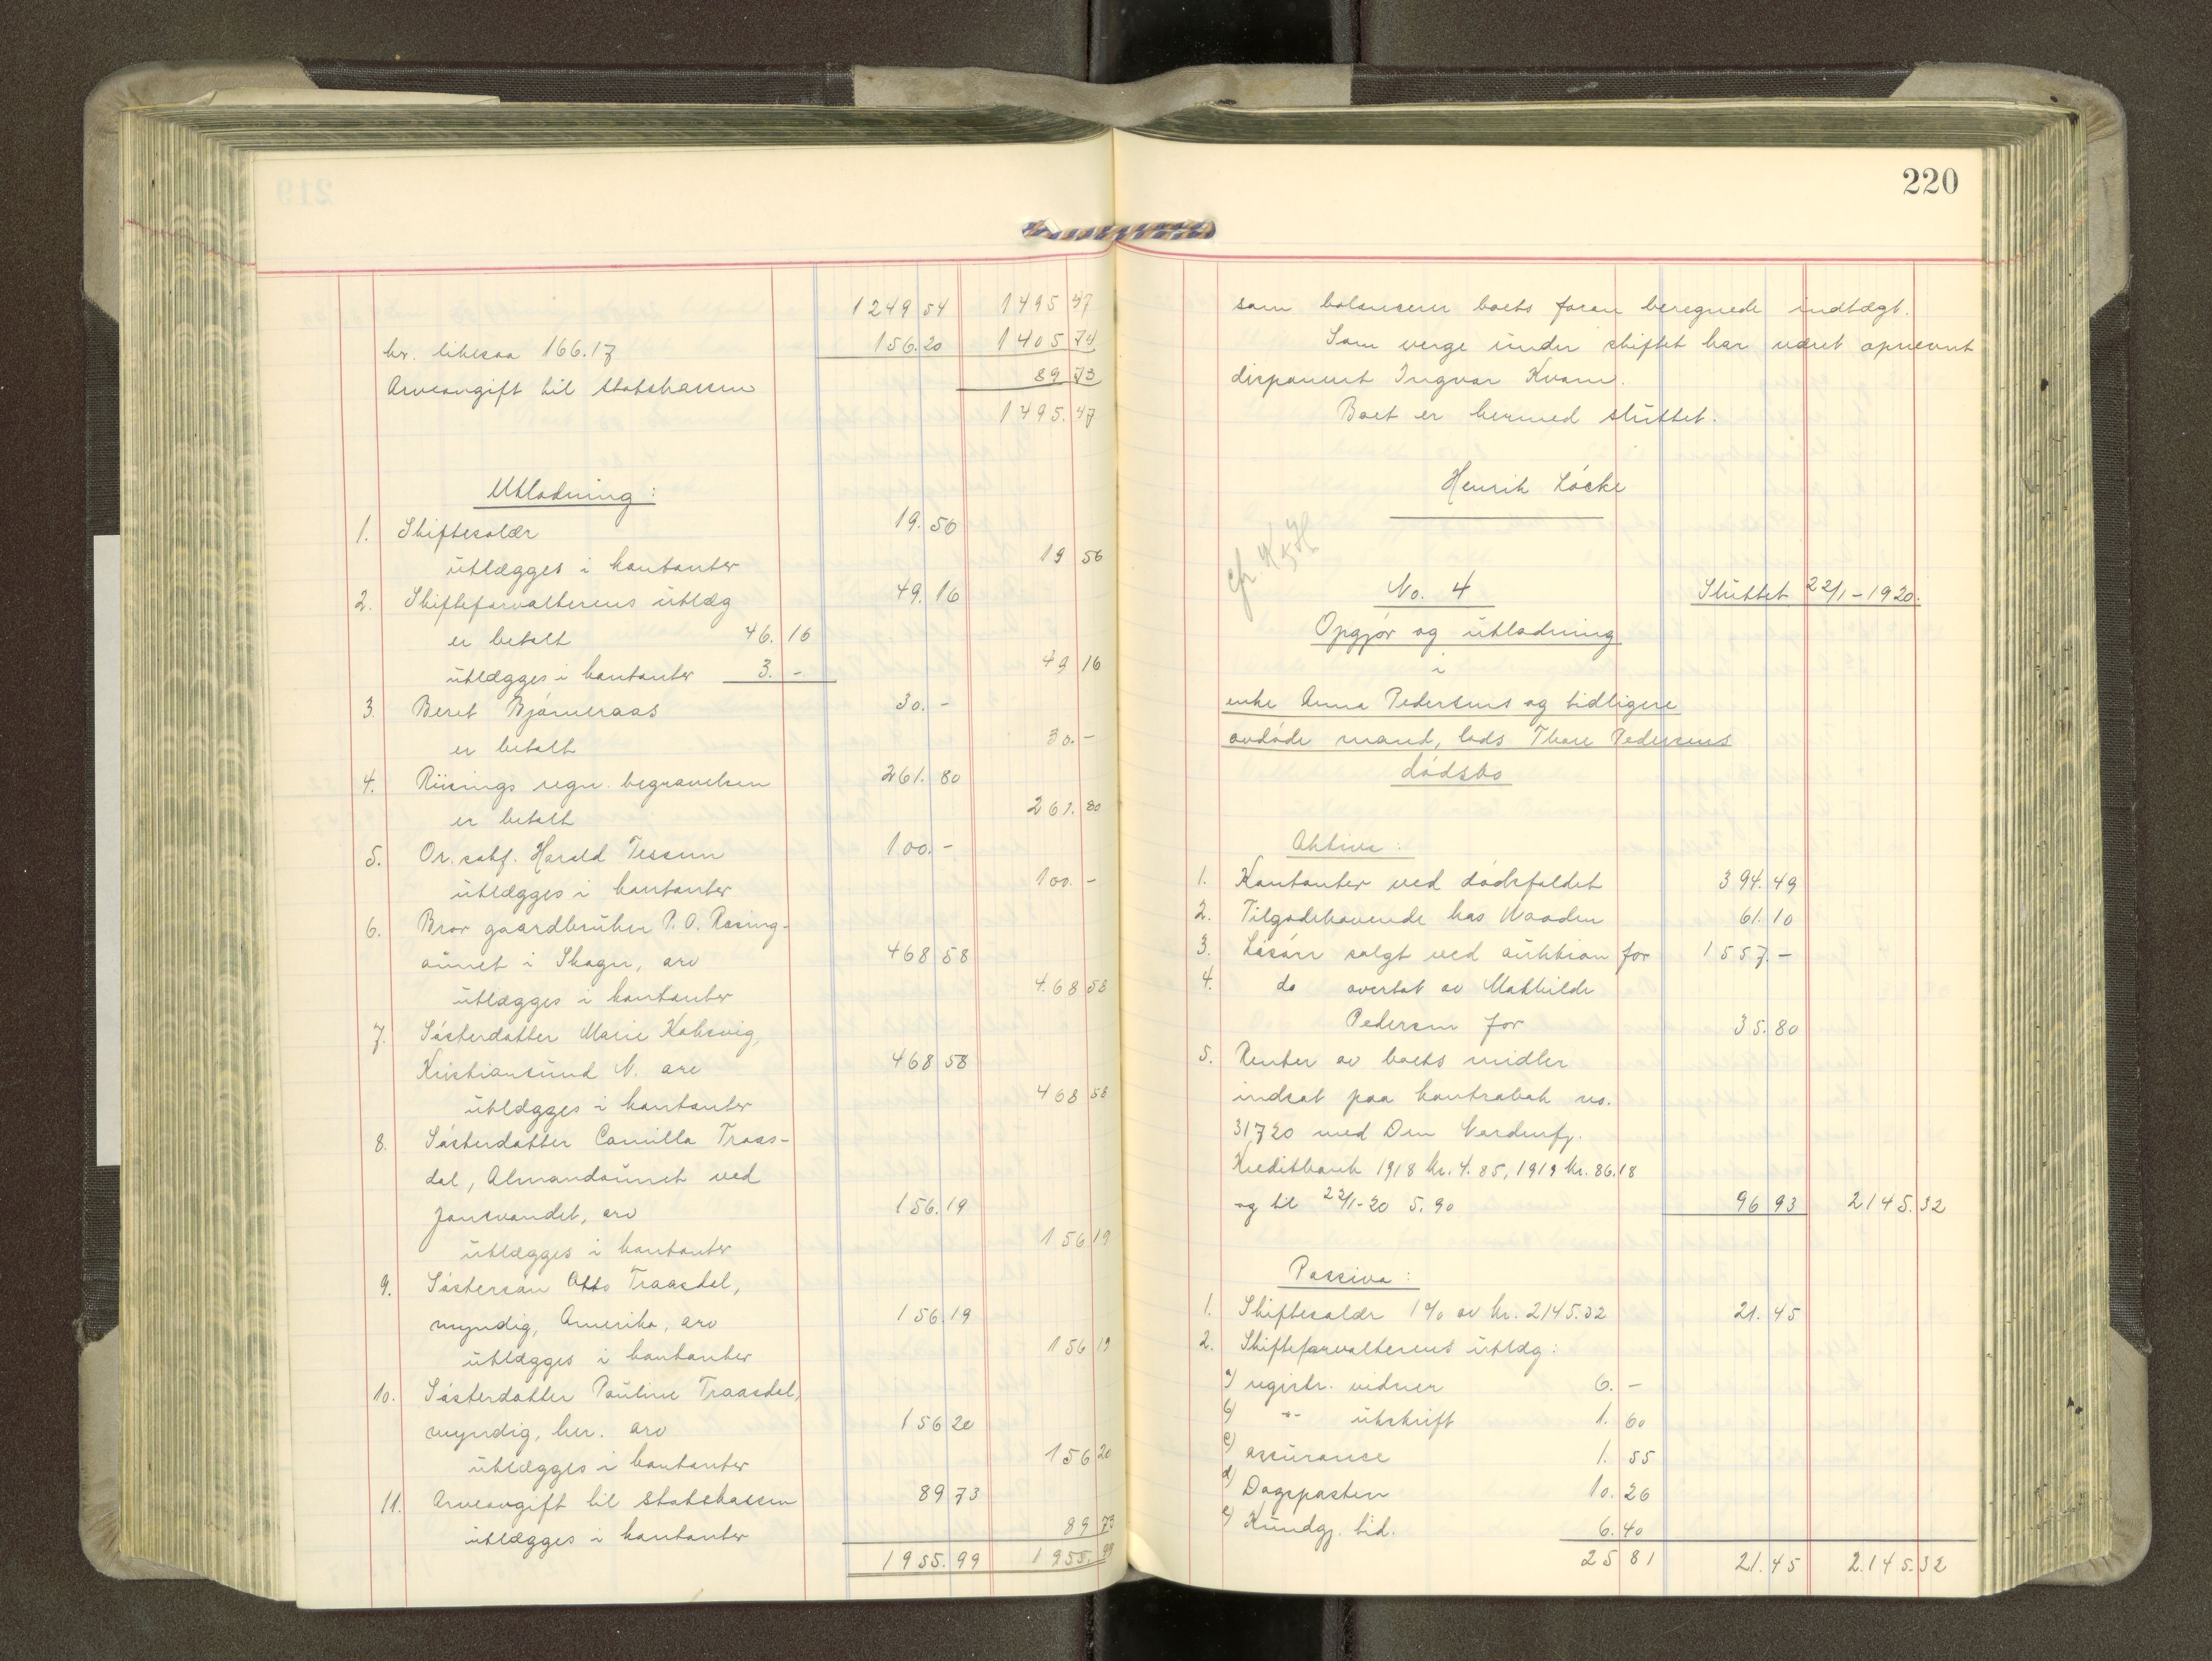 1249 54 1495 47
kr. likesaa 166.17 156.20 1405 74
Arveavgift til statskassen 89 73
1495.47
Utlodning:
1. Skiftesalær 19.56
utlægges i kontanter 19 56
2. Skifteforvalterens utlæg 49.16
er betalt 46.16
utlægges i kontanter 3.- 49 16
3. Beret Bjørneraas 30.-
er betalt 30.-
4. Riisings regn. begravelsen 261.80
er betalt 261.80
5. Or. sakf. Harald Tessem 100.-
utlægges i kontanter 100.-
6. Bror gaardbruker P. O. Rasing-
aunet i Skogn, arv 468 58
utlægges i kontanter 468 58
7. Søsterdatter Marie Kaksvig,
Kristiansund N. arv 468 58
utlægges i kontanter 468 58
8. Søsterdatter Camilla Traas-
dal, Almandaunet ved
Jonsvandet, arv 156.19
utlægges i kontanter 156.19
9. Søstersøn Otto Traasdal,
myndig, Amerika, arv 156.19
utlægges i kontanter 156 19
10. Søsterdatter Pauline Traasdal,
myndig, her. arv 156 20
utlægges i kontanter 156 20
11. Arveavgift til statskassen 89 73
utlægges i kontanter 89 73
1955.99 1955.99
220
som balanserer boets foran beregnede indtægt.
Som verge under skiftet har været opnevnt
disponent Ingvar Kvam.
Boet er hermed sluttet.
Henrik Løcke
No. 4 Sluttet 22/1-1920.
Opgjør og utlodning
i
enke Anna Pedersens og tidligere
avdøde mand, lods Thore Pedersens
dødsbo
Aktiva:
1. Kontanter ved dødsfaldet 394.49
2. Tilgodehavende hos Waaden 61.10
3. Løsøre solgt ved auktion for 1557.-
4. do overtat av Mathilde
Pedersen for 35.80
5. Renter av boets midler
indsat paa kontrabok no.
31720 med Den Nordenfj.
Kreditbank 1918 kr. 4.85, 1919 kr. 86.18
og til 22/1-20 5.90 96 93 2145.32
Passiva:
1. Skiftesalær 1% av kr. 2145.32 21.45
2. Skifteforvalterens utlæg:
a) registr. vidner 6.-
b) -"- utskrift 1.60
c) assurance 1.55
d) Dagsposten 10.26
e) Kundgj. tid. 6.40
25 81 21.45 2.145.32